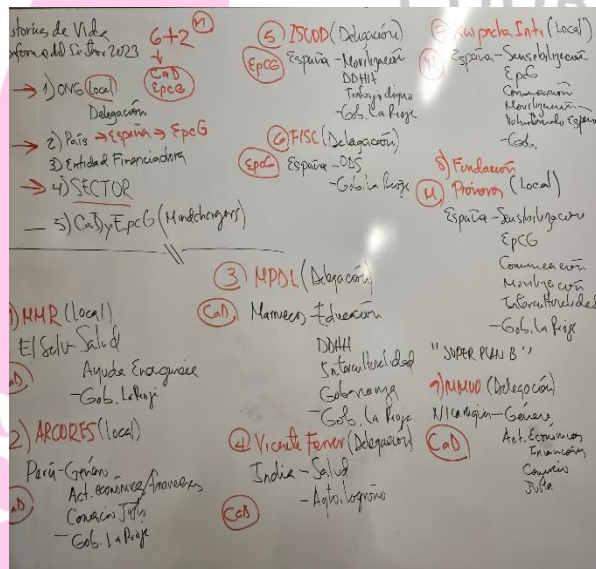 storias de Vida
nforme del Sector 2023
6+2 (M)
CaD
EpCG
→ 1) ONG Local
Delegación
→ 2) País → España → EpCG
3) Entidad Financiadora
→ 4) SECTOR
— 5) CaD y EpCG (Mindchangers)
1) MMR (Local)
El Salv - Salud
Ayuda
- Gob. La Rioja
2) ARCORES (Local)
Perú - Género
Act. económica/financieras
Comercio Justo
- Gob. La Rioja
3) MPDL (Delegación)
CaD
Marruecos - Educación
DDHH
Interculturalidad
Gobernanza
- Gob. La Rioja
4) Vicente Ferrer (Delegación)
India - Salud
- Ayto. Logroño
CaD
5) ISCOD (Delegación)
EpCG
España - Movilización
DDHH
Trabajo digno
- Gob. La Rioja
6) FISC (Delegación)
EpCG
España - ODS
- Gob. La Rioja
Inti (Local)
M
España - Sensibilización
EpCG
Comunicación
Movilización
Voluntariado
- Gob.
8) Fundación
M
Pioneros (Local)
España - Sensibilización
EpCG
Comunicación
Movilización
Interculturalidad
- Gob. La Rioja
"SUPER PLAN B"
(Delegación)
Nicaragua - Género
CaD
Act. Económicas
Financieras
Comercio
Justo